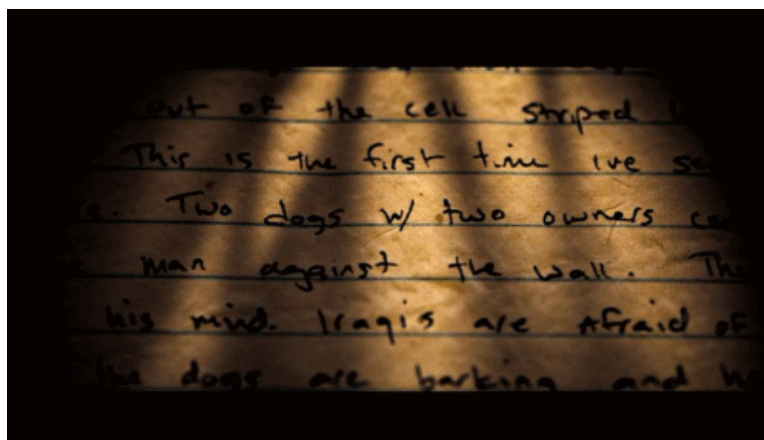 out of the cell striped
This is the first time ive
Two dogs w/ two owners
man against the wall.
his mind. Iraqis are Afraid of
the dogs are barking and